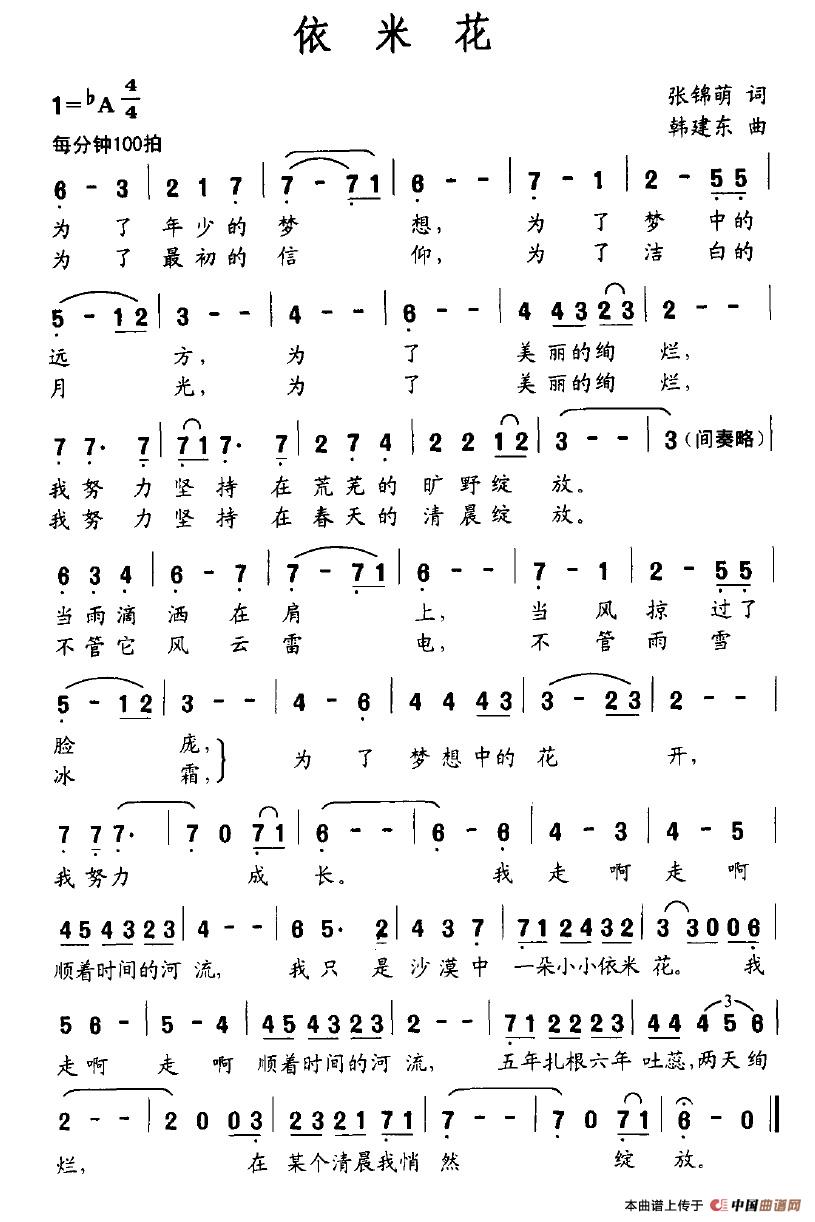 依 米 花
1=♭A 4/4
张锦萌 词
韩建东 曲
每分钟100拍
6 - 3 | 2 1 7 | 7 - 7 1 | 6 - - | 7 - 1 | 2 - 5 5 |
为 了 年 少 的 梦 想, 为 了 梦 中 的
为 了 最 初 的 信 仰, 为 了 洁 白 的
5 - 1 2 | 3 - - | 4 - - | 6 - - | 4 4 3 2 3 | 2 - - |
远 方, 为 了 美 丽 的 绚 烂,
月 光, 为 了 美 丽 的 绚 烂,
7 7· 7 | 7 1 7· 7 | 2 7 4 | 2 2 1 2 | 3 - - | 3 (间奏略) |
我 努 力 坚 持 在 荒 芜 的 旷 野 绽 放。
我 努 力 坚 持 在 春 天 的 清 晨 绽 放。
6 3 4 | 6 - 7 | 7 - 7 1 | 6 - - | 7 - 1 | 2 - 5 5 |
当 雨 滴 洒 在 肩 上, 当 风 掠 过 了
不 管 它 风 云 雷 电, 不 管 雨 雪
5 - 1 2 | 3 - - | 4 - 6 | 4 4 4 3 | 3 - 2 3 | 2 - - |
脸 庞, 为 了 梦 想 中 的 花 开,
冰 霜,
7 7 7· | 7 0 7 1 | 6 - - | 6 - 6 | 4 - 3 | 4 - 5 |
我 努 力 成 长。 我 走 啊 走 啊
4 5 4 3 2 3 | 4 - - | 6 5· 2 | 4 3 7 | 7 1 2 4 3 2 | 3 3 0 0 6 |
顺着时间的河 流, 我 只 是 沙 漠 中 一朵小小依米 花。 我
5 6 - | 5 - 4 | 4 5 4 3 2 3 | 2 - - | 7 1 2 2 2 3 | 4 4 4 5 6 |
走 啊 走 啊 顺着时间的河 流, 五年扎根六年 吐蕊,两天绚
2 - - | 2 0 0 3 | 2 3 2 1 7 1 | 7 - - | 7 0 7 1 | 6 - 0 ‖
烂, 在 某个清晨我悄 然 绽 放。
本曲谱上传于 中国曲谱网